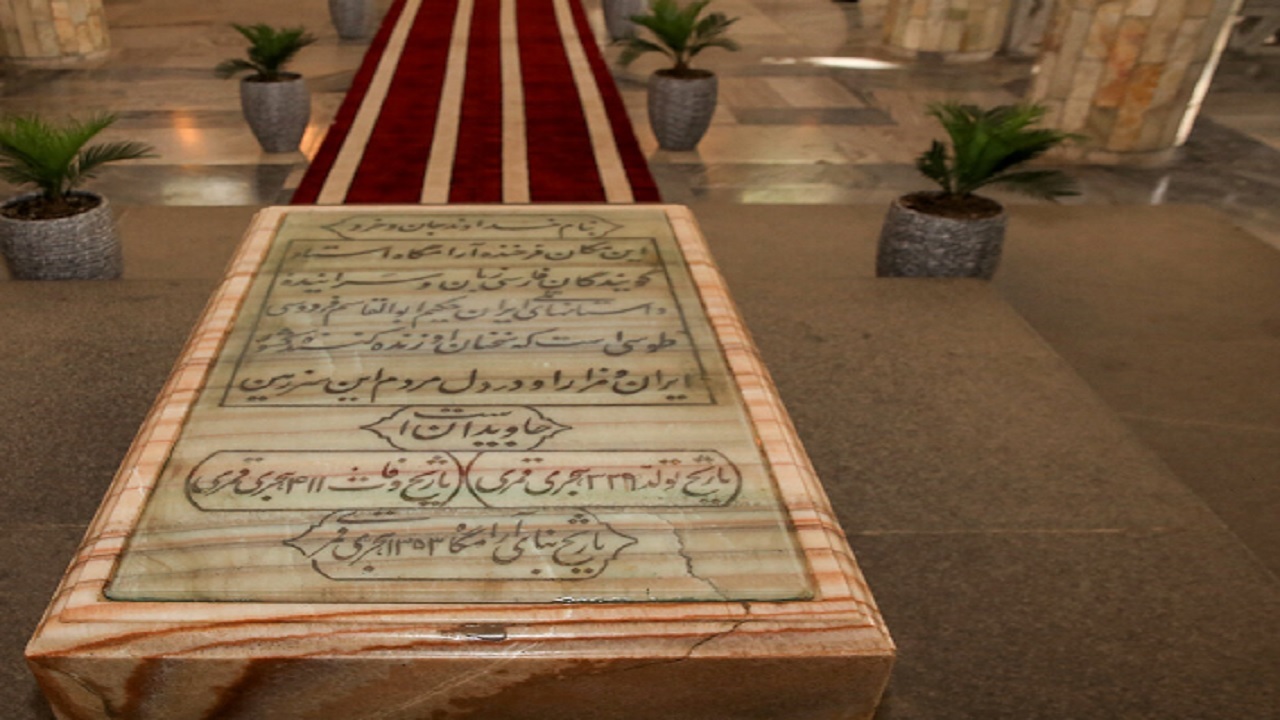 بنام خداوند جان و خرد
این مکان فرخنده آرامگاه استاد
گویندگان فارسی زبان و سراینده
داستانهای ملی ایران حکیم ابوالقاسم فردوسی
طوسی است که سخنان او زنده کننده کشور
ایران و مزار او در دل مردم این سرزمین
جاویدان است
تاریخ تولد ۳۲۹ هجری قمری تاریخ وفات ۴۱۱ هجری قمری
تاریخ بنای آرامگاه ۱۳۵۳ هجری قمری